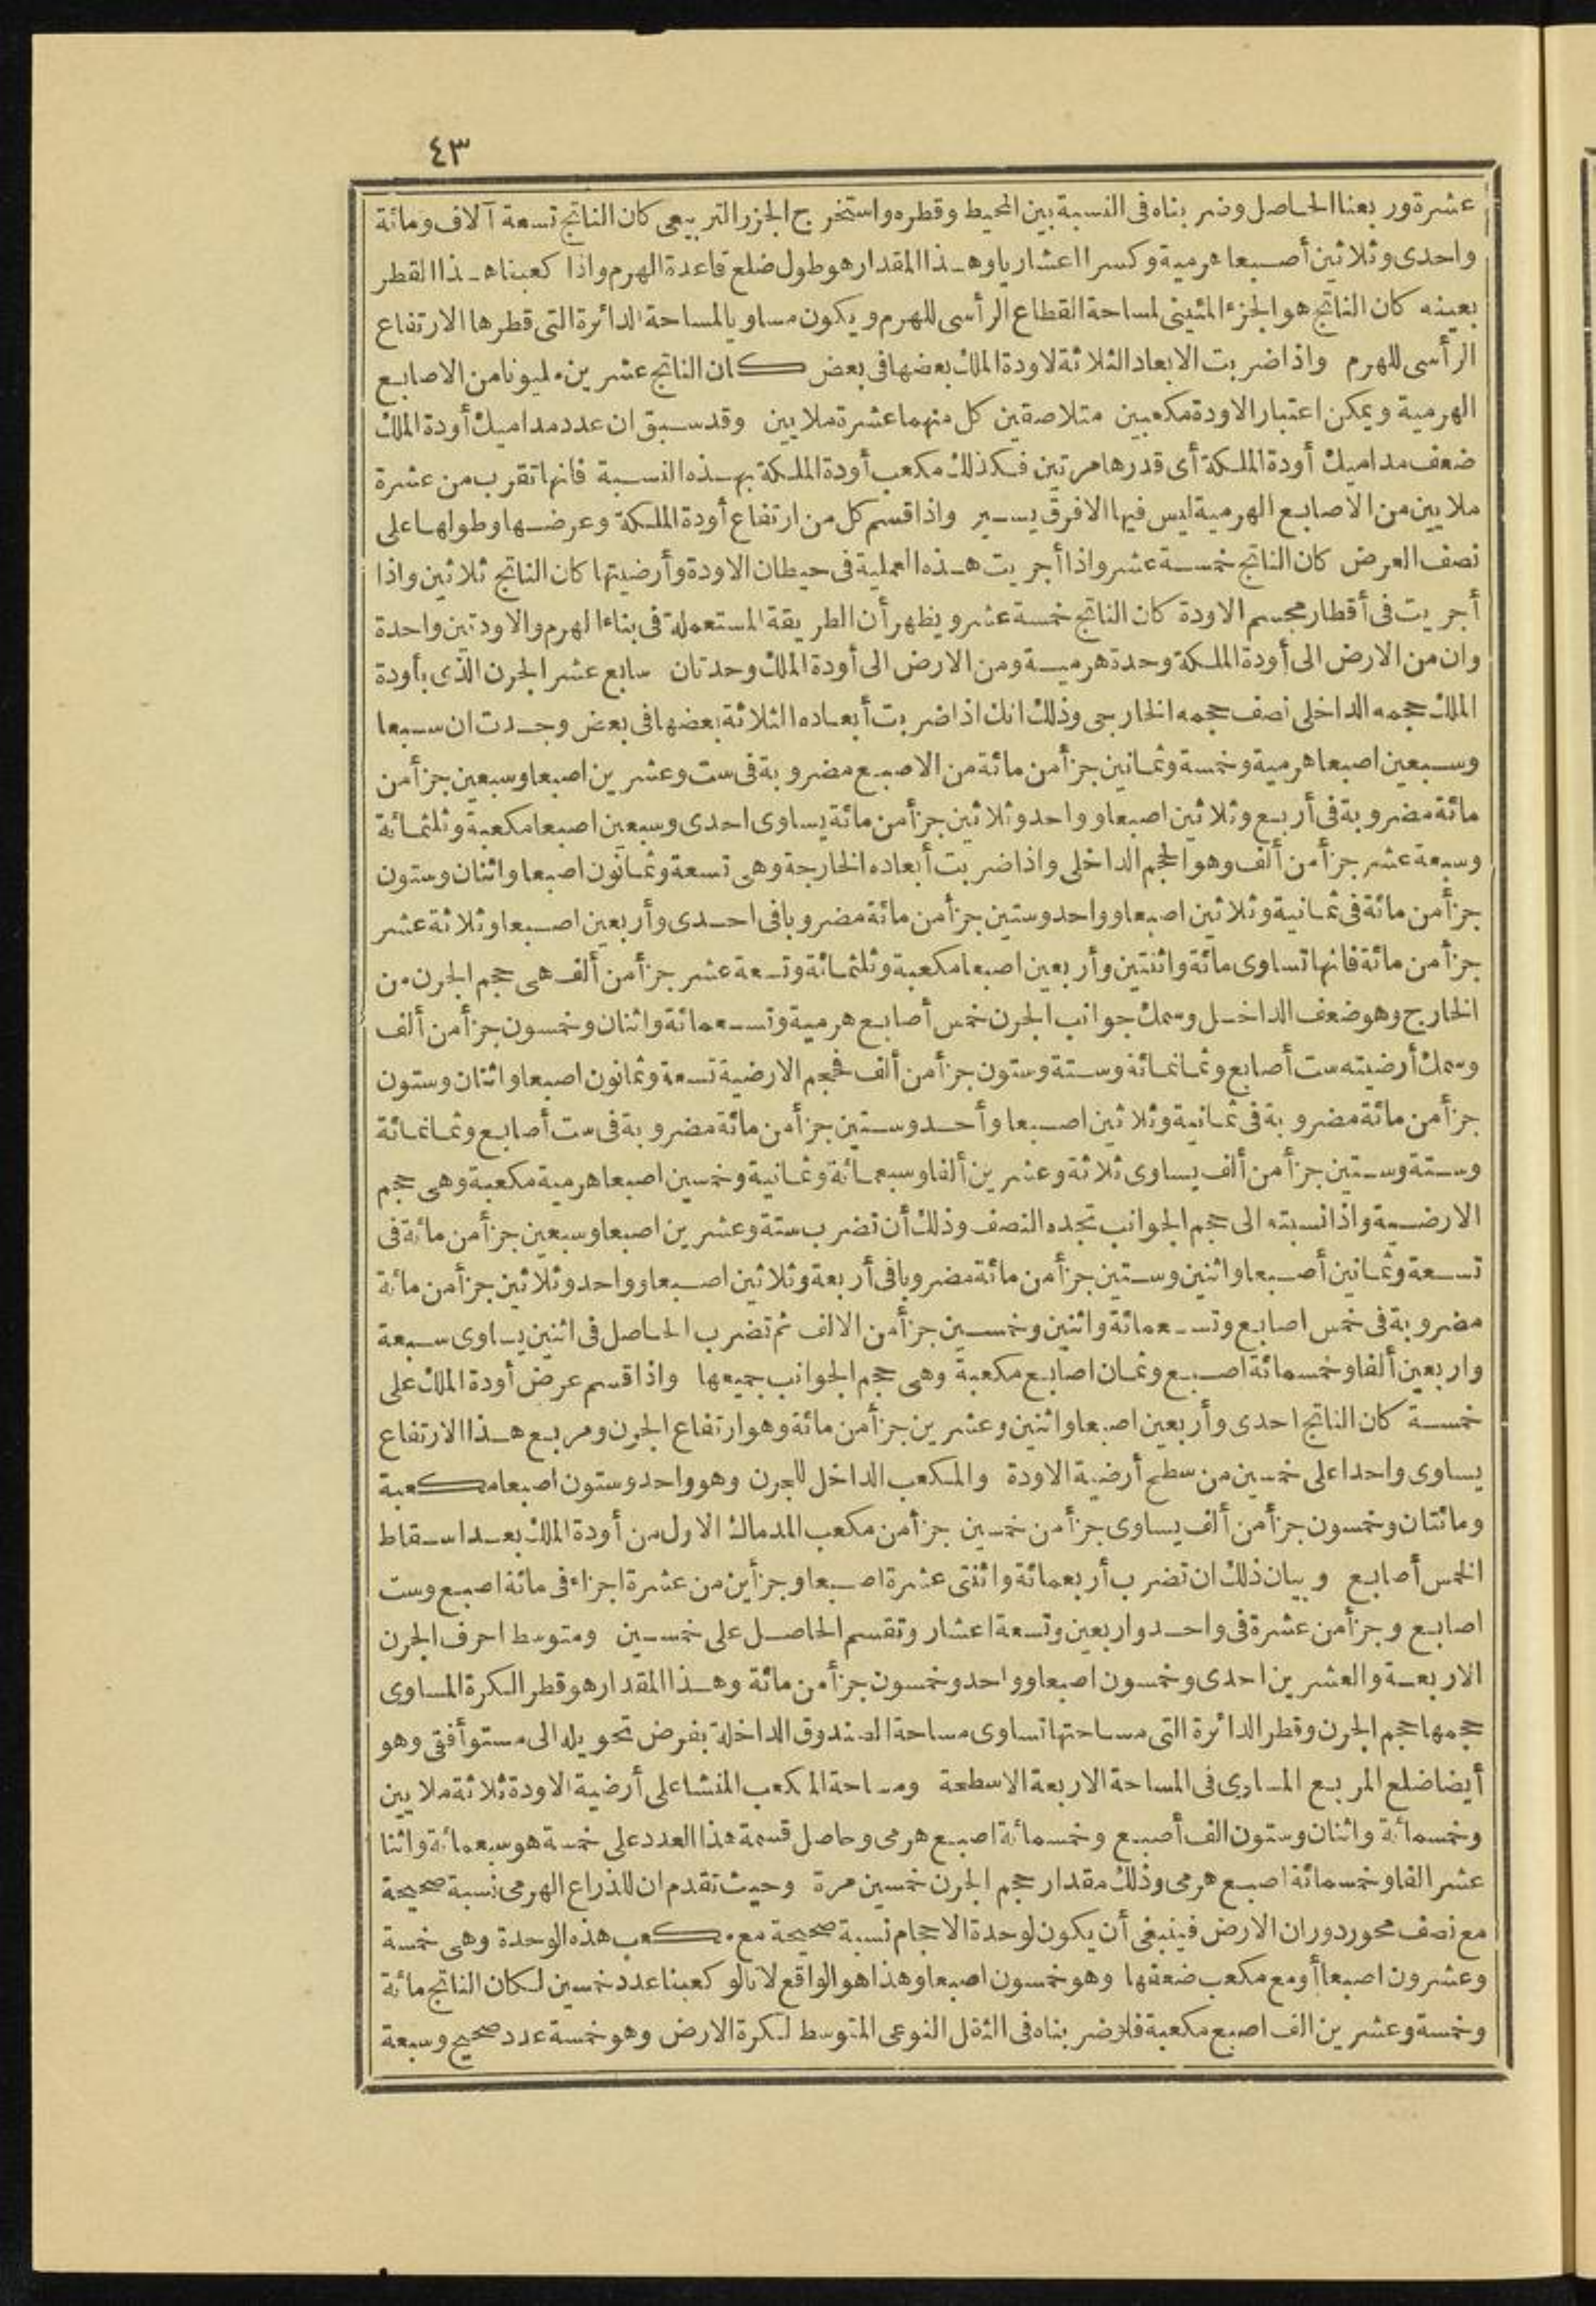 ٤٣
عشرة وربعنا الحاصل وضربناه فى النسبة بين المحيط وقطره واستخرج الجزر التربيعى كان الناتج تسعة آلاف ومائة
واحدى وثلاثين أصبعا هرمية وكسرا اعشاريا وهذا المقدار هو طول ضلع قاعدة الهرم واذا كعبنا هذا القطر
بعينه كان الناتج هو الجزء المئينى لمساحة القطاع الرأسى للهرم ويكون مساويا لمساحة الدائرة التى قطرها الارتفاع
الرأسى للهرم واذا ضربت الابعاد الثلاثة لاودة الملك بعضها فى بعض كان الناتج عشرين مليونا من الاصابع
الهرمية ويمكن اعتبار الاودة مكعبين متلاصقين كل منهما عشرة ملايين وقد سبق ان عدد مداميك أودة الملك
ضعف مداميك أودة الملكة أى قدرها مرتين فكذلك مكعب أودة الملكة بهذه النسبة فانها تقرب من عشرة
ملايين من الاصابع الهرمية ليس فيها الا فرق يسير واذا قسم كل من ارتفاع أودة الملكة وعرضها وطولها على
نصف العرض كان الناتج خمسة عشر واذا أجريت هذه العملية فى حيطان الاودة وأرضيتها كان الناتج ثلاثين واذا
أجريت فى أقطار مجسم الاودة كان الناتج خمسة عشر ويظهر أن الطريقة المستعملة فى بناء الهرم والاودتين واحدة
وان من الارض الى أودة الملكة وحدة هرمية ومن الارض الى أودة الملك وحدتان سابع عشر الجرن الذى بأودة
الملك حجمه الداخلى نصف حجمه الخارجى وذلك انك اذا ضربت أبعاده الثلاثة بعضها فى بعض وجدت ان سبعا
وسبعين اصبعا هرمية وخمسة وثمانين جزأ من مائة من الاصبع مضروبة فى ست وعشرين اصبعا وسبعين جزأ من
مائة مضروبة فى أربع وثلاثين اصبعا وواحد وثلاثين جزأ من مائة يساوى احدى وسبعين اصبعا مكعبة وثلثمائة
وسبعة عشر جزأ من ألف وهو الحجم الداخلى واذا ضربت أبعاده الخارجة وهى تسعة وثمانون اصبعا واثنان وستون
جزأ من مائة فى ثمانية وثلاثين اصبعا وواحد وستين جزأ من مائة مضروبا فى احدى وأربعين اصبعا وثلاثة عشر
جزأ من مائة فانها تساوى مائة واثنتين وأربعين اصبعا مكعبة وثلثمائة وتسعة عشر جزأ من ألف هى حجم الجرن من
الخارج وهو ضعف الداخل وسمك جوانب الجرن خمس أصابع هرمية وتسعمائة واثنان وخمسون جزأ من ألف
وسمك أرضيته ست أصابع وثمانمائة وستة وستون جزأ من ألف فحجم الارضية تسعة وثمانون اصبعا واثنان وستون
جزأ من مائة مضروبة فى ثمانية وثلاثين اصبعا وأحد وستين جزأ من مائة مضروبة فى ست أصابع وثمانمائة
وستة وستين جزأ من ألف يساوى ثلاثة وعشرين ألفا وسبعمائة وثمانية وخمسين اصبعا هرمية مكعبة وهى حجم
الارضية واذا نسبته الى حجم الجوانب تجده النصف وذلك أن تضرب ستة وعشرين اصبعا وسبعين جزأ من مائة فى
تسعة وثمانين أصبعا واثنين وستين جزأ من مائة مضروبا فى أربعة وثلاثين اصبعا وواحد وثلاثين جزأ من مائة
مضروبة فى خمس اصابع وتسعمائة واثنين وخمسين جزأ من الالف ثم تضرب الحاصل فى اثنين يساوى سبعة
واربعين ألفا وخمسمائة اصبع وثمان اصابع مكعبة وهى حجم الجوانب جميعها واذا قسم عرض أودة الملك على
خمسة كان الناتج احدى وأربعين اصبعا واثنين وعشرين جزأ من مائة وهو ارتفاع الجرن ومربع هذا الارتفاع
يساوى واحدا على خمسين من سطح أرضية الاودة والمكعب الداخل للجرن وهو واحد وستون اصبعا مكعبة
ومائتان وخمسون جزأ من ألف يساوى جزأ من خمسين جزأ من مكعب المدماك الاول من أودة الملك بعد اسقاط
الخمس أصابع وبيان ذلك ان تضرب أربعمائة واثنتى عشرة اصبعا وجزأين من عشرة اجزاء فى مائة اصبع وست
اصابع وجزأ من عشرة فى واحد واربعين وتسعة اعشار وتقسم الحاصل على خمسين ومتوسط احرف الجرن
الاربعة والعشرين احدى وخمسون اصبعا وواحد وخمسون جزأ من مائة وهذا المقدار هو قطر الكرة المساوى
حجمها حجم الجرن وقطر الدائرة التى مساحتها تساوى مساحة الصندوق الداخلة بفرض تحويله الى مستو أفقى وهو
أيضا ضلع المربع المساوى فى المساحة الاربعة الاسطحة ومساحة المكعب المنشا على أرضية الاودة ثلاثة ملايين
وخمسمائة واثنان وستون الف أصبع وخمسمائة اصبع هرمى وحاصل قسمة هذا العدد على خمسة هو سبعمائة واثنا
عشر الفا وخمسمائة اصبع هرمى وذلك مقدار حجم الجرن خمسين مرة وحيث تقدم ان للذراع الهرمى نسبة صحيحة
مع نصف محور دوران الارض فينبغى أن يكون لوحدة الاحجام نسبة صحيحة مع مكعب هذه الوحدة وهى خمسة
وعشرون اصبعا أو مع مكعب ضعفها وهو خمسون اصبعا وهذا هو الواقع لانا لو كعبنا عدد خمسين لكان الناتج مائة
وخمسة وعشرين الف اصبع مكعبة فلو ضربناه فى الثقل النوعى المتوسط لكرة الارض وهو خمسة عدد صحيح وسبعة